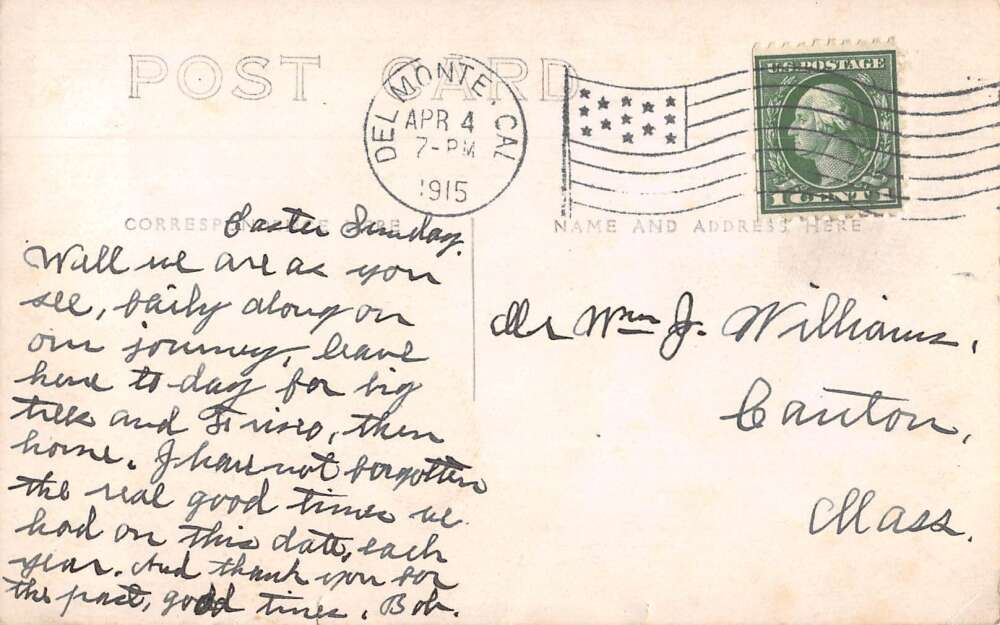 POST CARD
DEL MONTE, CAL
APR 4
7-PM
1915
U.S. POSTAGE
1 CENT 1
CORRESPONDENCE HERE
NAME AND ADDRESS HERE
Easter Sunday.
Well we are as you
see, fairly along on
our journey, leave
here to-day for big
trees and Frisco, then
home. I have not forgotten
the real good times we
had on this date, each
year. And thank you for
the past, good times. Bob.
Mr Wm J. Williams,
Canton,
Mass.